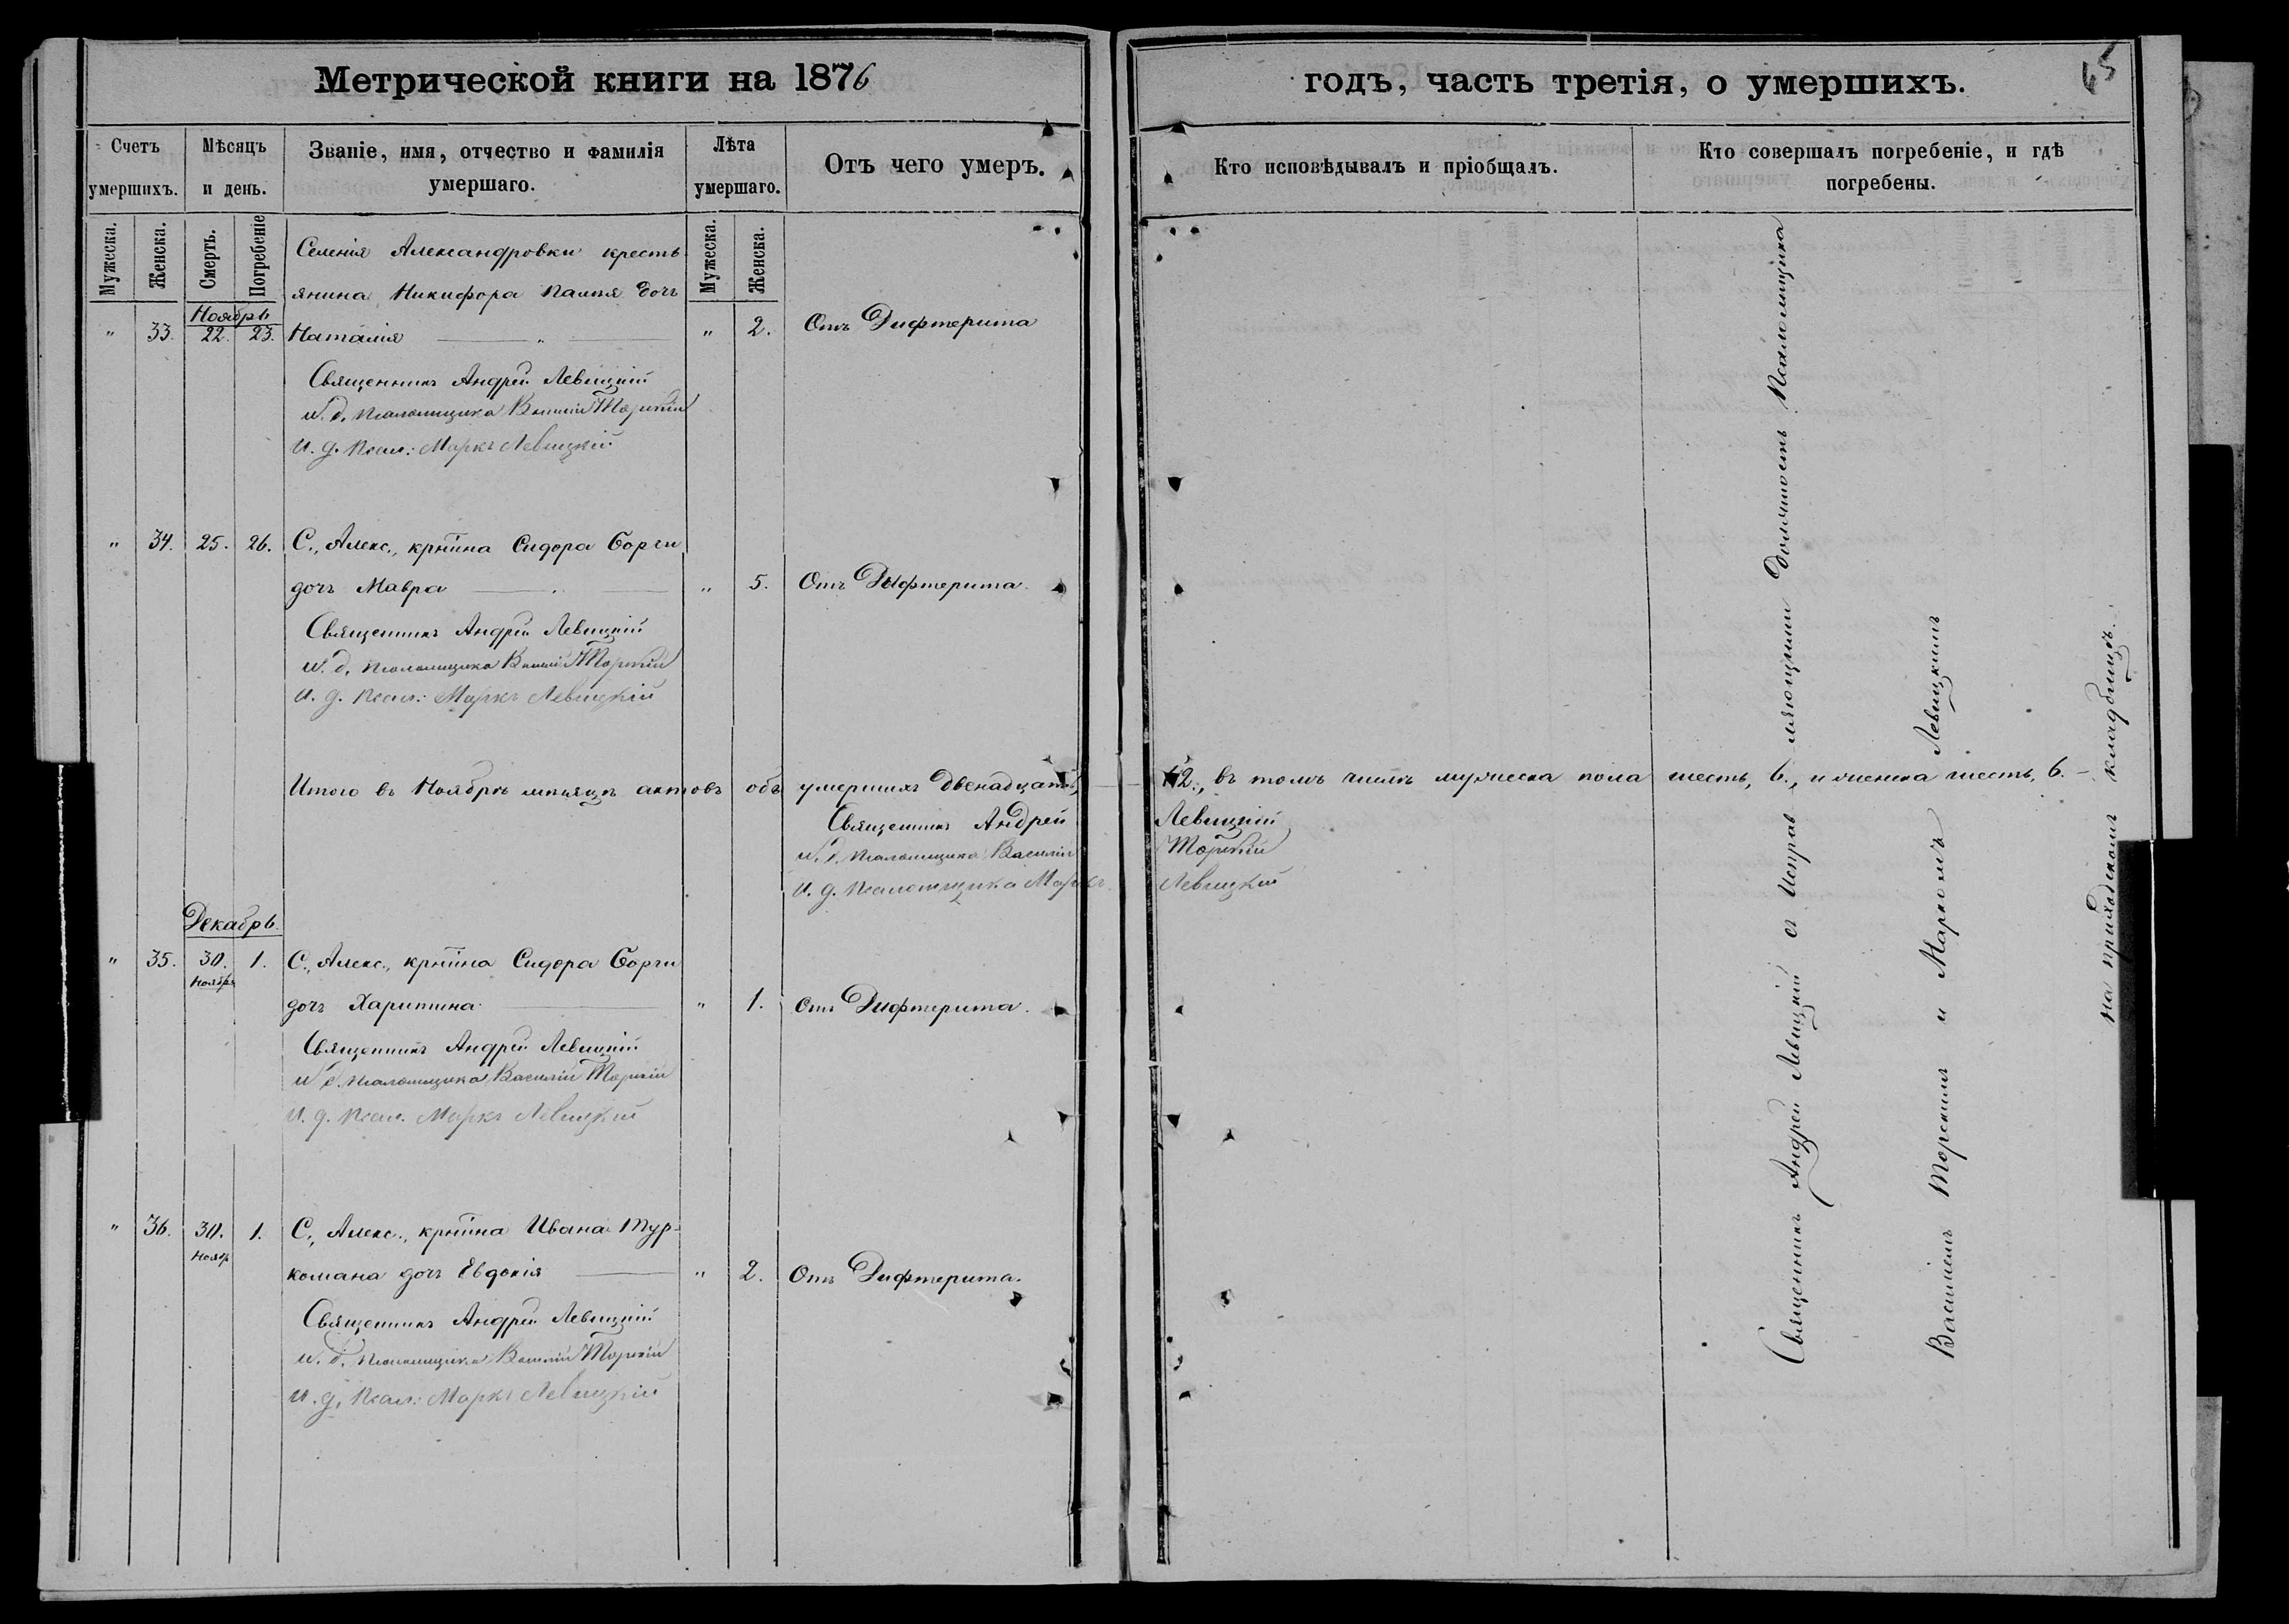 Метрической книги на 1876
годъ, часть третія, о умершихъ.
45
Счетъ умершихъ.
Мѣсяцъ и день.
Званіе, имя, отчество и фамилія умершаго.
Лѣта умершаго.
Отъ чего умеръ.
Кто исповѣдывалъ и пріобщалъ.
Кто совершалъ погребеніе, и гдѣ погребены.
Мужеска.
Женска.
Смерть.
Погребеніе
Мужеска.
Женска.
Селенія Александровки кресть
янина Никифора дочь
Ноябрь
" 33. 22. 23. Наталія " 2. Отъ Дифтерита
Священникъ Андрей Левицкій
И. д. псаломщика Василій Торскій
И. д. Псал: Маркъ Левицкій
" 34. 25. 26. С., Алекс., крнина Сидора Борчи
дочь Мавра " 5. Отъ Дифтерита.
Священникъ Андрей Левицкій
И. д. псаломщика Василій Торскій
И. д. Псал: Маркъ Левицкій
Итого въ Ноябрѣ мѣсяцѣ актовъ объ умершихъ двенадцать, 12., въ томъ числѣ мужеска пола шесть, 6., и женска шесть, 6. –
Священникъ Андрей Левицкій
И. д. псаломщика Василій Торскій
И. д. Псаломщика Маркъ Левицкій
Декабрь.
" 35. 30. 1. С., Алекс., крнина Сидора Борчи
Ноябр.
дочь Харитина " 1. Отъ Дифтерита.
Священникъ Андрей Левицкій
И. д. псаломщика Василій Торскій
И. д. Псал. Маркъ Левицкій
" 36. 30. 1. С., Алекс., крнина Ивана Тур-
Ноябр
комана дочь Евдокія " 2. Отъ Дифтерита.
Священникъ Андрей Левицкій
И. д. псаломщика Василій Торскій
И. д. Псал: Маркъ Левицкій
Священникъ Андрей Левицкій съ Исправляющими должность Псаломщика
Василіемъ Торскимъ и Маркомъ Левицкимъ
на приходскомъ кладбищѣ.